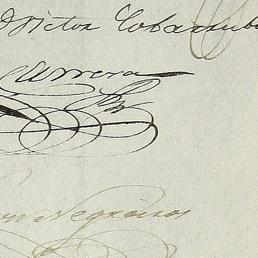 Victor Cobarrub
Carrera
Negreiros